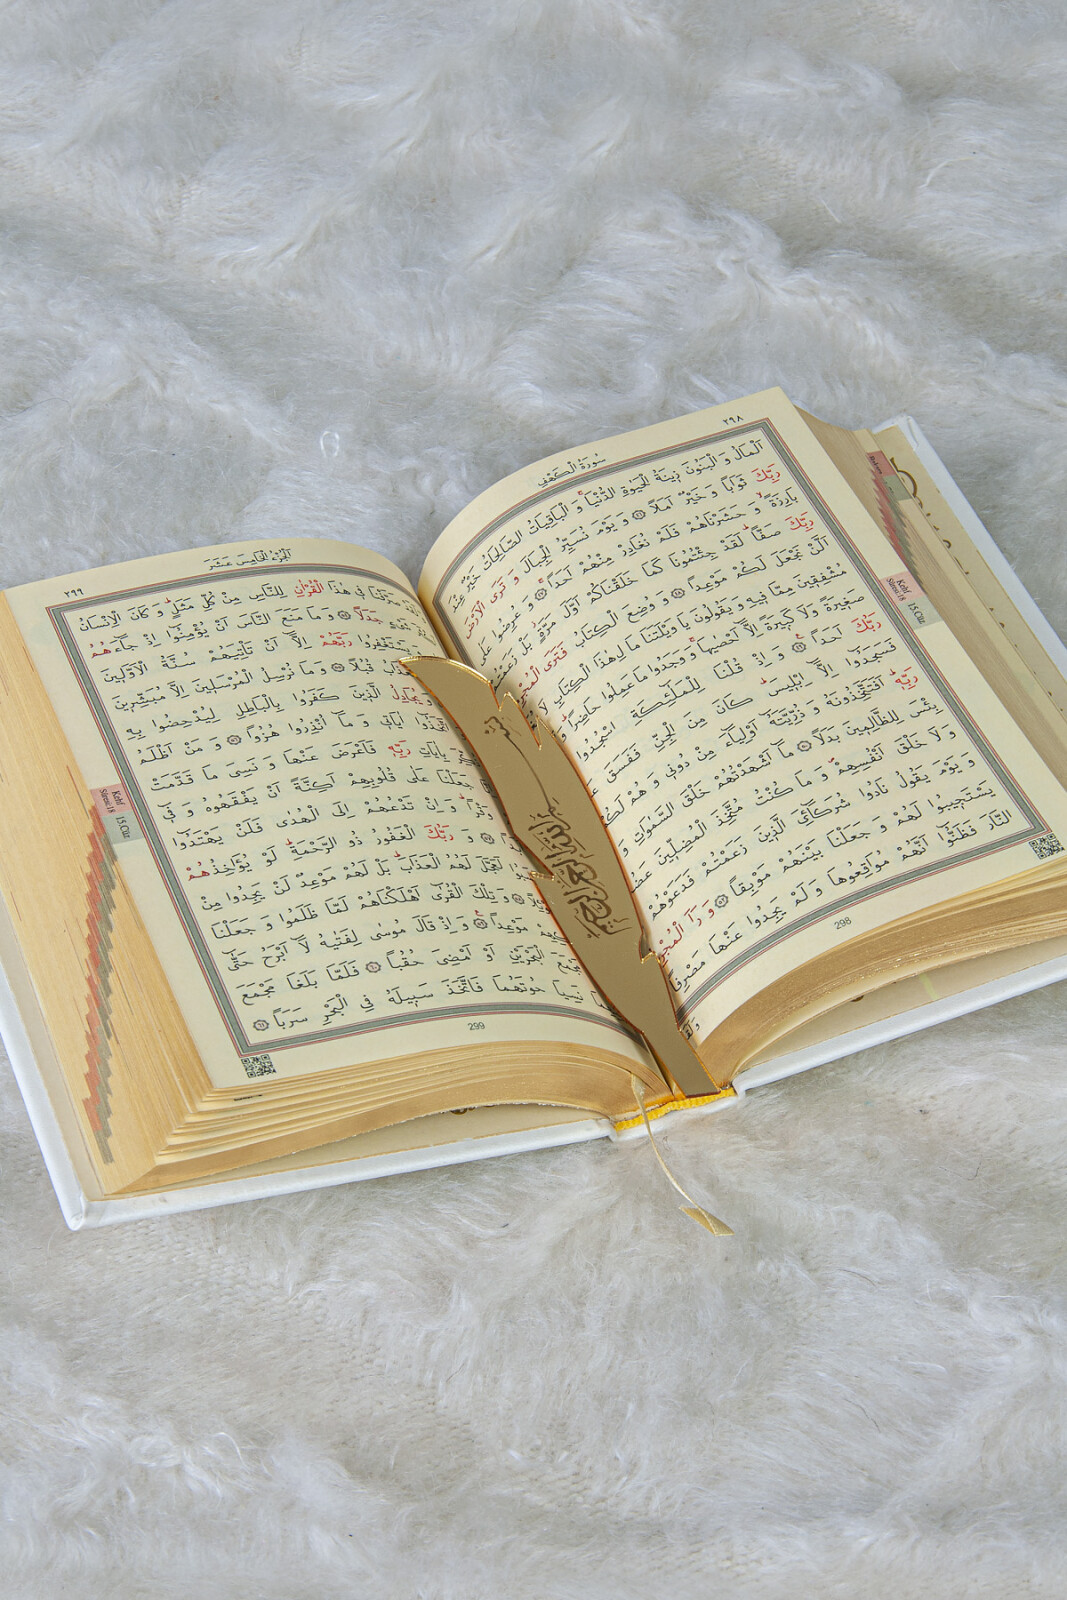 ٢٩٨
سُورَةُ الْكَهْفِ
اَلْمَالُ وَ الْبَنُونَ زِينَةُ الْحَيٰوةِ الدُّنْيَاۚ وَ الْبَاقِيَاتُ الصَّالِحَاتُ خَيْرٌ عِنْدَ
رَبِّكَ ثَوَاباً وَ خَيْرٌ اَمَلاً ﴿٤٦﴾ وَ يَوْمَ نُسَيِّرُ الْجِبَالَ وَ تَرَى الْاَرْضَ
بَارِزَةًۙ وَ حَشَرْنَاهُمْ فَلَمْ نُغَادِرْ مِنْهُمْ اَحَداًۚ ﴿٤٧﴾ وَ عُرِضُوا عَلٰى
رَبِّكَ صَفًّاۜ لَقَدْ جِئْتُمُونَا كَمَا خَلَقْنَاكُمْ اَوَّلَ مَرَّةٍۘ بَلْ زَعَمْتُمْ
اَلَّنْ نَجْعَلَ لَكُمْ مَوْعِداً ﴿٤٨﴾ وَ وُضِعَ الْكِتَابُ فَتَرَى
مُشْفِقِينَ مِمَّا فِيهِ وَ يَقُولُونَ يَا وَيْلَتَنَا مَا لِهٰذَا الْكِتَابِ لَا
صَغِيرَةً وَلَا كَبِيرَةً اِلَّٓا اَحْصٰيهَاۚ وَ وَجَدُوا مَا عَمِلُوا حَاضِراًۜ
رَبُّكَ اَحَداً۟ ﴿٤٩﴾ وَ اِذْ قُلْنَا لِلْمَلٰٓئِكَةِ اسْجُدُوا
فَسَجَدُٓوا اِلَّٓا اِبْلِيسَۜ كَانَ مِنَ الْجِنِّ فَفَسَقَ
رَبِّهٖۜ اَفَتَتَّخِذُونَهُ وَ ذُرِّيَّتَهُٓ اَوْلِيَٓاءَ مِنْ دُونٖي وَ هُمْ
بِئْسَ لِلظَّالِمِينَ بَدَلاً ﴿٥٠﴾ مَٓا اَشْهَدْتُهُمْ خَلْقَ السَّمٰوَاتِ
وَ لَا خَلْقَ اَنْفُسِهِمْۖ وَ مَا كُنْتُ مُتَّخِذَ الْمُضِلِّينَ
وَ يَوْمَ يَقُولُ نَادُوا شُرَكَٓائِيَ الَّذِينَ زَعَمْتُمْ فَدَعَوْهُمْ
يَسْتَجِيبُوا لَهُمْ وَ جَعَلْنَا بَيْنَهُمْ مَوْبِقاً ﴿٥٢﴾ وَ رَاَ
النَّارَ فَظَنُّٓوا اَنَّهُمْ مُوَاقِعُوهَا وَ لَمْ يَجِدُوا عَنْهَا مَصْرِفاً
298
Kehf Sûresi 18
15.Cüz
٢٩٩
اَلْجُزْءُ الْخَامِسَ عَشَرَ
فٖي هٰذَا الْقُرْاٰنِ لِلنَّاسِ مِنْ كُلِّ مَثَلٍۜ وَ كَانَ الْاِنْسَانُ
جَدَلاً ﴿٥٤﴾ وَ مَا مَنَعَ النَّاسَ اَنْ يُؤْمِنُٓوا اِذْ جَٓاءَهُمُ
رَبَّهُمْ اِلَّٓا اَنْ تَأْتِيَهُمْ سُنَّةُ الْاَوَّلِينَ
قُبُلاً ﴿٥٥﴾ وَ مَا نُرْسِلُ الْمُرْسَلِينَ اِلَّا مُبَشِّرِينَ
الَّذِينَ كَفَرُوا بِالْبَاطِلِ لِيُدْحِضُوا بِهِ
اٰيَاتٖي وَ مَٓا اُنْذِرُوا هُزُواً ﴿٥٦﴾ وَ مَنْ اَظْلَمُ
بِاٰيَاتِ رَبِّهٖ فَاَعْرَضَ عَنْهَا وَ نَسِيَ مَا قَدَّمَتْ
جَعَلْنَا عَلٰى قُلُوبِهِمْ اَكِنَّةً اَنْ يَفْقَهُوهُ وَ فٖٓي
وَ اِنْ تَدْعُهُمْ اِلَى الْهُدٰى فَلَنْ يَهْتَدُٓوا
وَ رَبُّكَ الْغَفُورُ ذُو الرَّحْمَةِۜ لَوْ يُؤَاخِذُهُمْ
لَعَجَّلَ لَهُمُ الْعَذَابَۜ بَلْ لَهُمْ مَوْعِدٌ لَنْ يَجِدُوا مِنْ
وَ تِلْكَ الْقُرٰٓى اَهْلَكْنَاهُمْ لَمَّا ظَلَمُوا وَ جَعَلْنَا
مَوْعِداً۟ ﴿٥٩﴾ وَ اِذْ قَالَ مُوسٰى لِفَتٰيهُ لَٓا اَبْرَحُ حَتّٰٓى
الْبَحْرَيْنِ اَوْ اَمْضِيَ حُقُباً ﴿٦٠﴾ فَلَمَّا بَلَغَا مَجْمَعَ
نَسِيَا حُوتَهُمَا فَاتَّخَذَ سَبِيلَهُ فِي الْبَحْرِ سَرَباً ﴿٦١﴾
299
Kehf Sûresi 18
15.Cüz
بسم الله الرحمن الرحيم